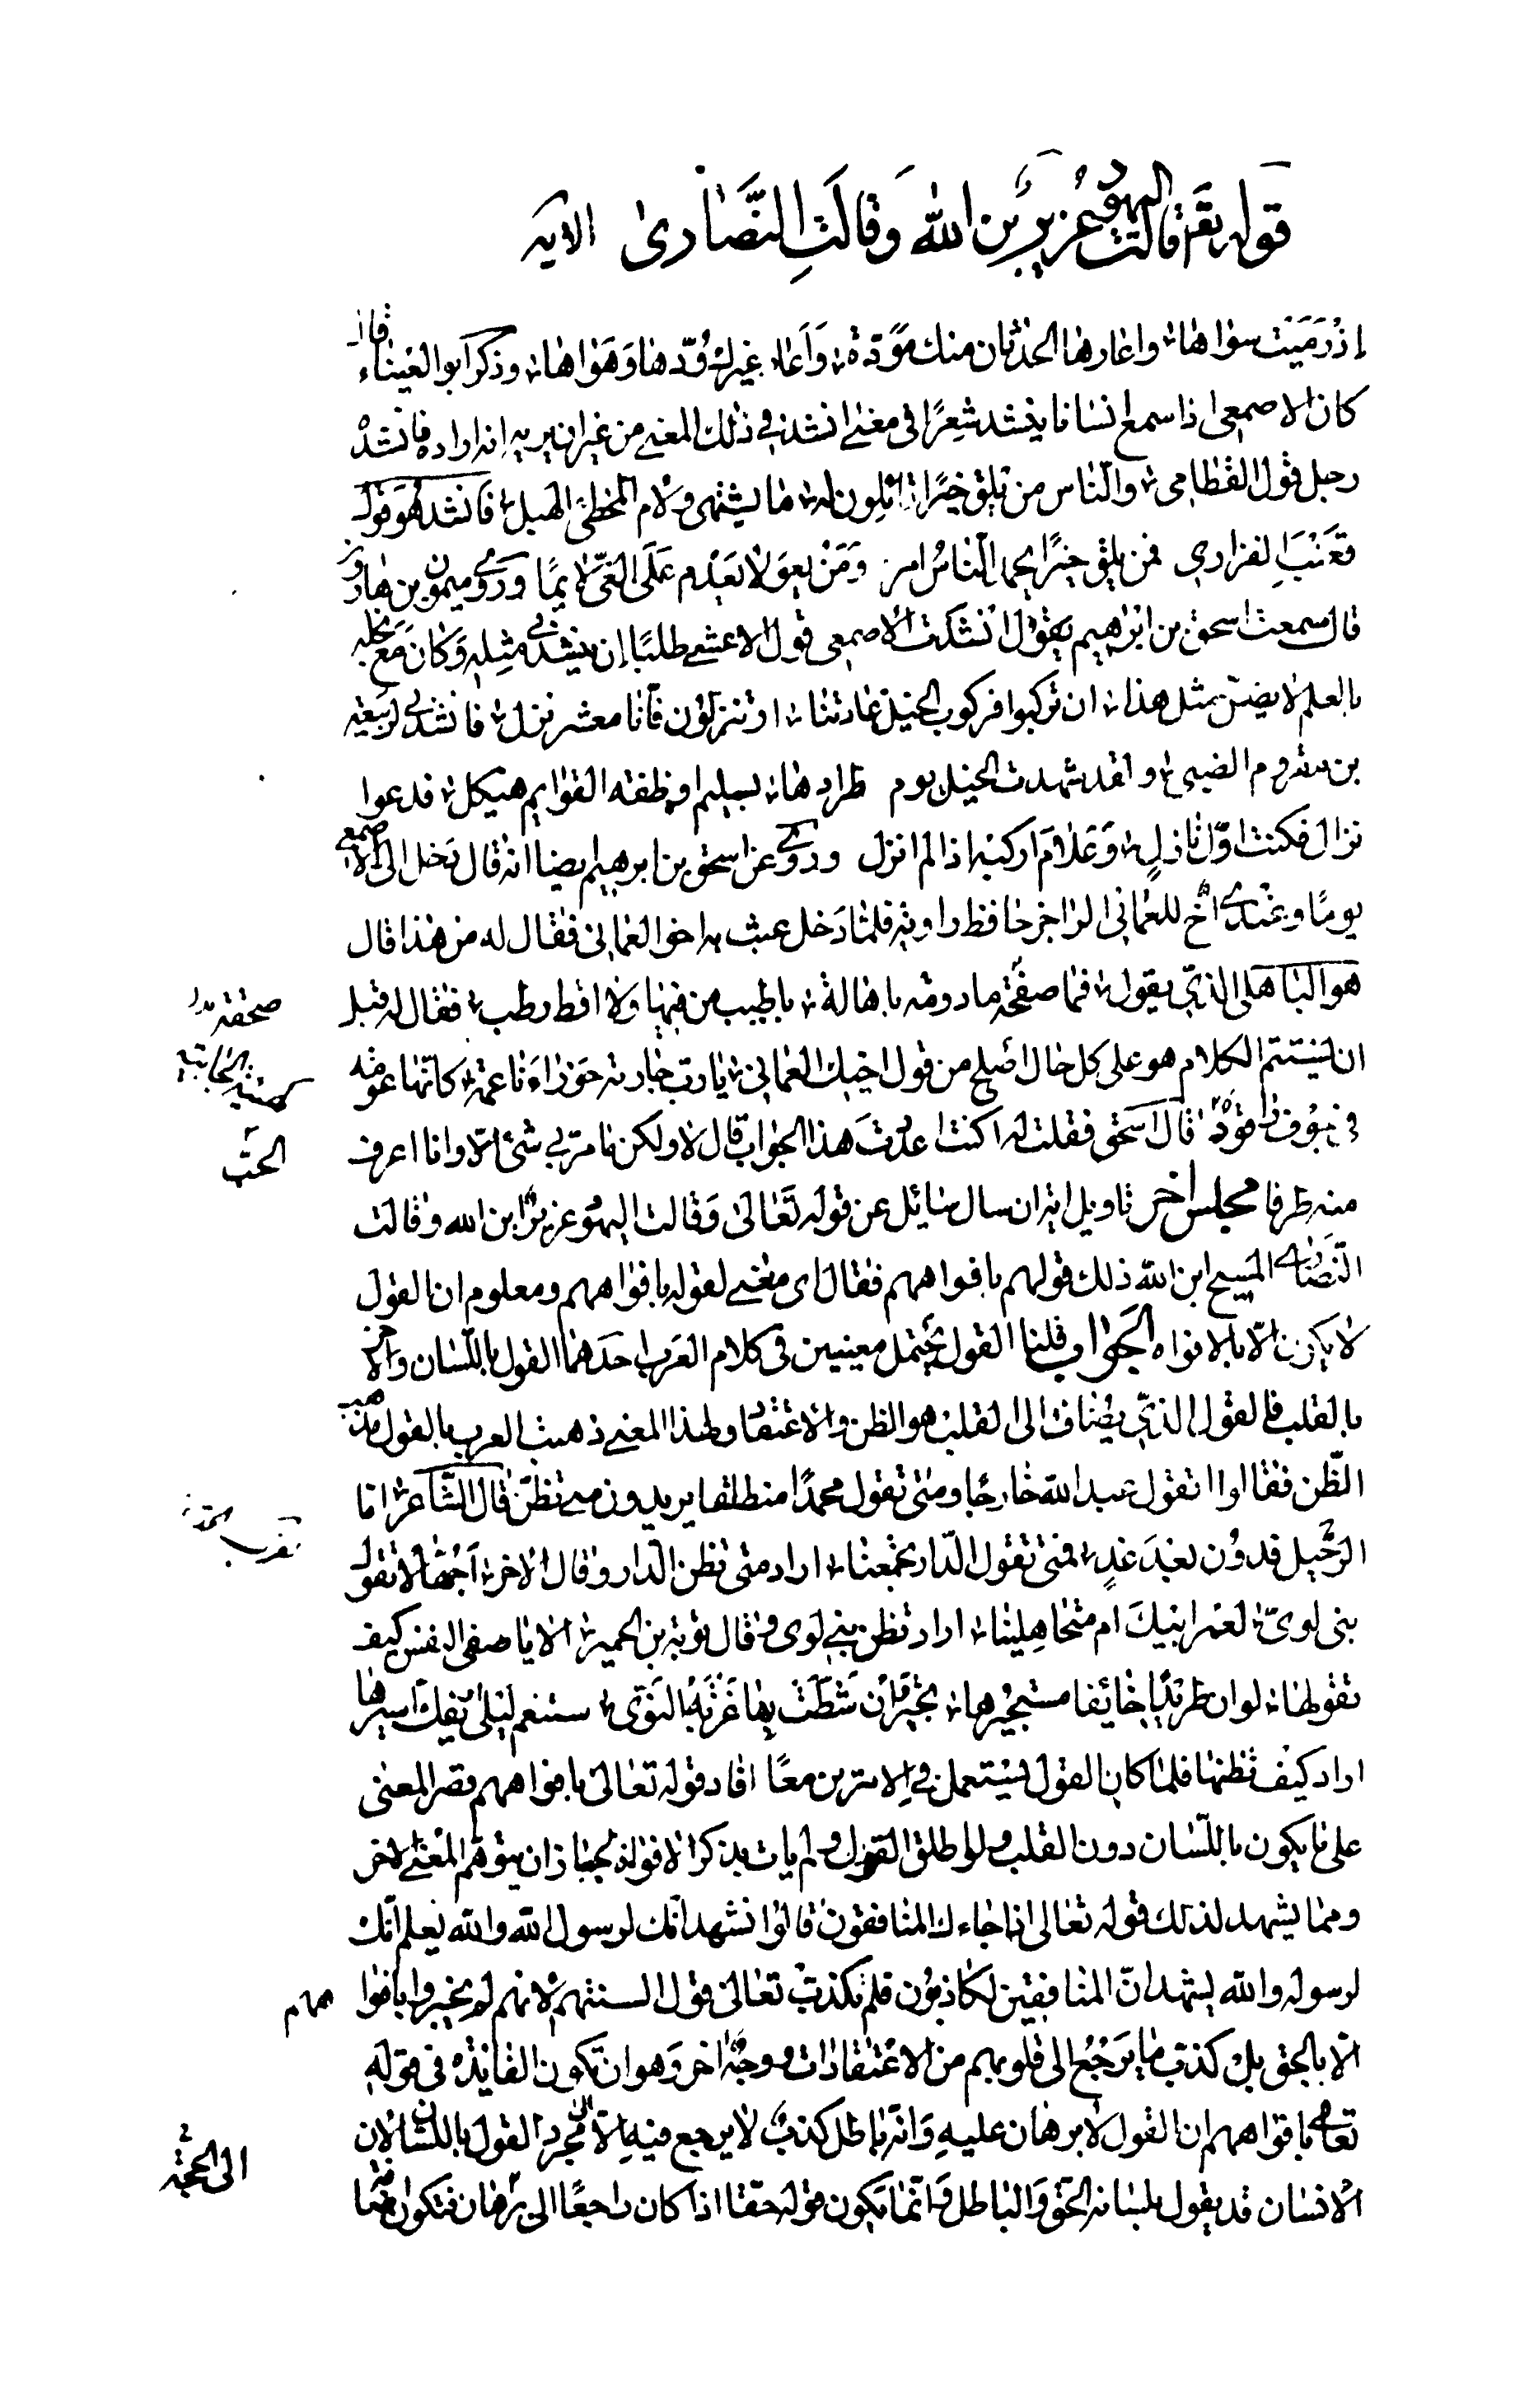 قوله تع قالت اليهود عزير بن الله وقالت النصارى الايه
إذ رميت سواها واعارها الحدثان منك مودة واعار غيرك ودّها وهواها وذكر ابو العيناء قال
كان الاصمعى اذا سمع انسانا ينشد شعرًا فى معنى انشد فى ذلك المعنى من غير ان يريه انه اراده فانشد
رجل قول القطامى والناس من يلق خيرًا قائلون له ما يشتهى ولام المخطئ الهبل فانشد هو قول
قعنب الفزاري فمن يلق خيرًا يحمد الناس امره ومن يغو لا يعدم على الغىّ لايمًا وروى ميمون بن هارون
قال سمعت اسحق بن ابرهيم يقول انشدت الاصمعى قول الاعشى طلبًا إن ينشدني مثله وكان مع بخله
بالعلم لا يضن بمثل هذا ان تركبوا فركوب الخيل عادتنا او تنزلون فانا معشر نزل فانشدنى لربيعة
بن مقروم الضبى ولقد شهدت الخيل يوم طرادها بسليم اوظفة القوايم هيكل فدعوا
نزال فكنت اوّل نازلٍ وعلام اركبه اذا لم انزل وروى عن اسحق بن ابرهيم ايضا انه قال دخل الى الاصمعى
يومًا وعندى اخ للعمانى الراجز حافظ راوية فلما دخل عبث به اخو العمانى فقال له من هذا قال
هو الباهلى الذى يقول فما صحفة مادومة باهالة باطيب من فيها ولا اقط رطب فقال له قبل
صحفة بدل
ان يستتم الكلام هو على كل حال اصلح من قول اخيك العمانى يا رب جارية حوراء ناعمة كانها عومة
فى جوف راقود قال اسحق فقلت له اكنت اعددت هذا الجواب قال لا ولكن ما مر بى شئ الا وانا اعرف
الحبّ
منه طرفا مجلس اخر تاويل اية ان سال سايل عن قوله تعالى وقالت اليهود عزيرٌ ابن الله وقالت
النصارى المسيح ابن الله ذلك قولهم بافواههم فقال اى معنى لقوله بافواههم ومعلوم ان القول
لا يكون الا بالافواه الجواب قلنا القول يحتمل معنيين فى كلام العرب احدهما القول باللسان والاخر
بالقلب فالقول الذى يضاف الى القلب هو الظن والاعتقاد ولهذا المعنى ذهبت العرب بالقول مذهب
الظّن فقالوا اتقول عبد الله خارجًا ومتى تقول محمدًا منطلقا يريدون متى تظنّ قال الشاعر اما
الرحيل فدون بعد غدٍ فمتى تقول الدار تجمعنا اراد متى تظن الدار وقال الاخر أجهّالا تقول
بنى لوىّ لعمر ابيك ام متجاهلينا اراد تظن بنى لوى وقال توبة بن الحمير الا يا صفى النفس كيف
تقولها لو ان طريدًا خائفا مستجيرها يخبر ان شطت بها غربة النوى ستنعم ليلى او يفك اسيرها
اراد كيف تظنها فلما كان القول يستعمل فى الامرين معًا افاد قوله تعالى بافواههم قصر المعنى
على ما يكون باللسان دون القلب ولو اطلق القول ولم يات بذكر الافواه لجاز ان يتوهم المعنى الاخر
ومما يشهد لذلك قوله تعالى اذا جاءك المنافقون قالوا نشهد انك لرسول الله والله يعلم انك
لرسوله والله يشهد انّ المنافقين لكاذبون فلم يكذب تعالى قول السنتهم لانهم لم يخبروا بافوا
همام
الا بالحق بل كذب ما يرجع الى قلوبهم من الاعتقادات ووجهٌ اخر وهو ان تكون الفائدة فى قوله
تعالى بافواههم ان القول لا برهان عليه وانّه باطل كذبٌ لا يرجع فيه الاّ الى مجرد القول باللسان لان
الى الحجّة
الانسان قد يقول بلسانه الحق والباطل وانّما يكون قوله حقا اذا كان راجعًا الى برهان فتكون